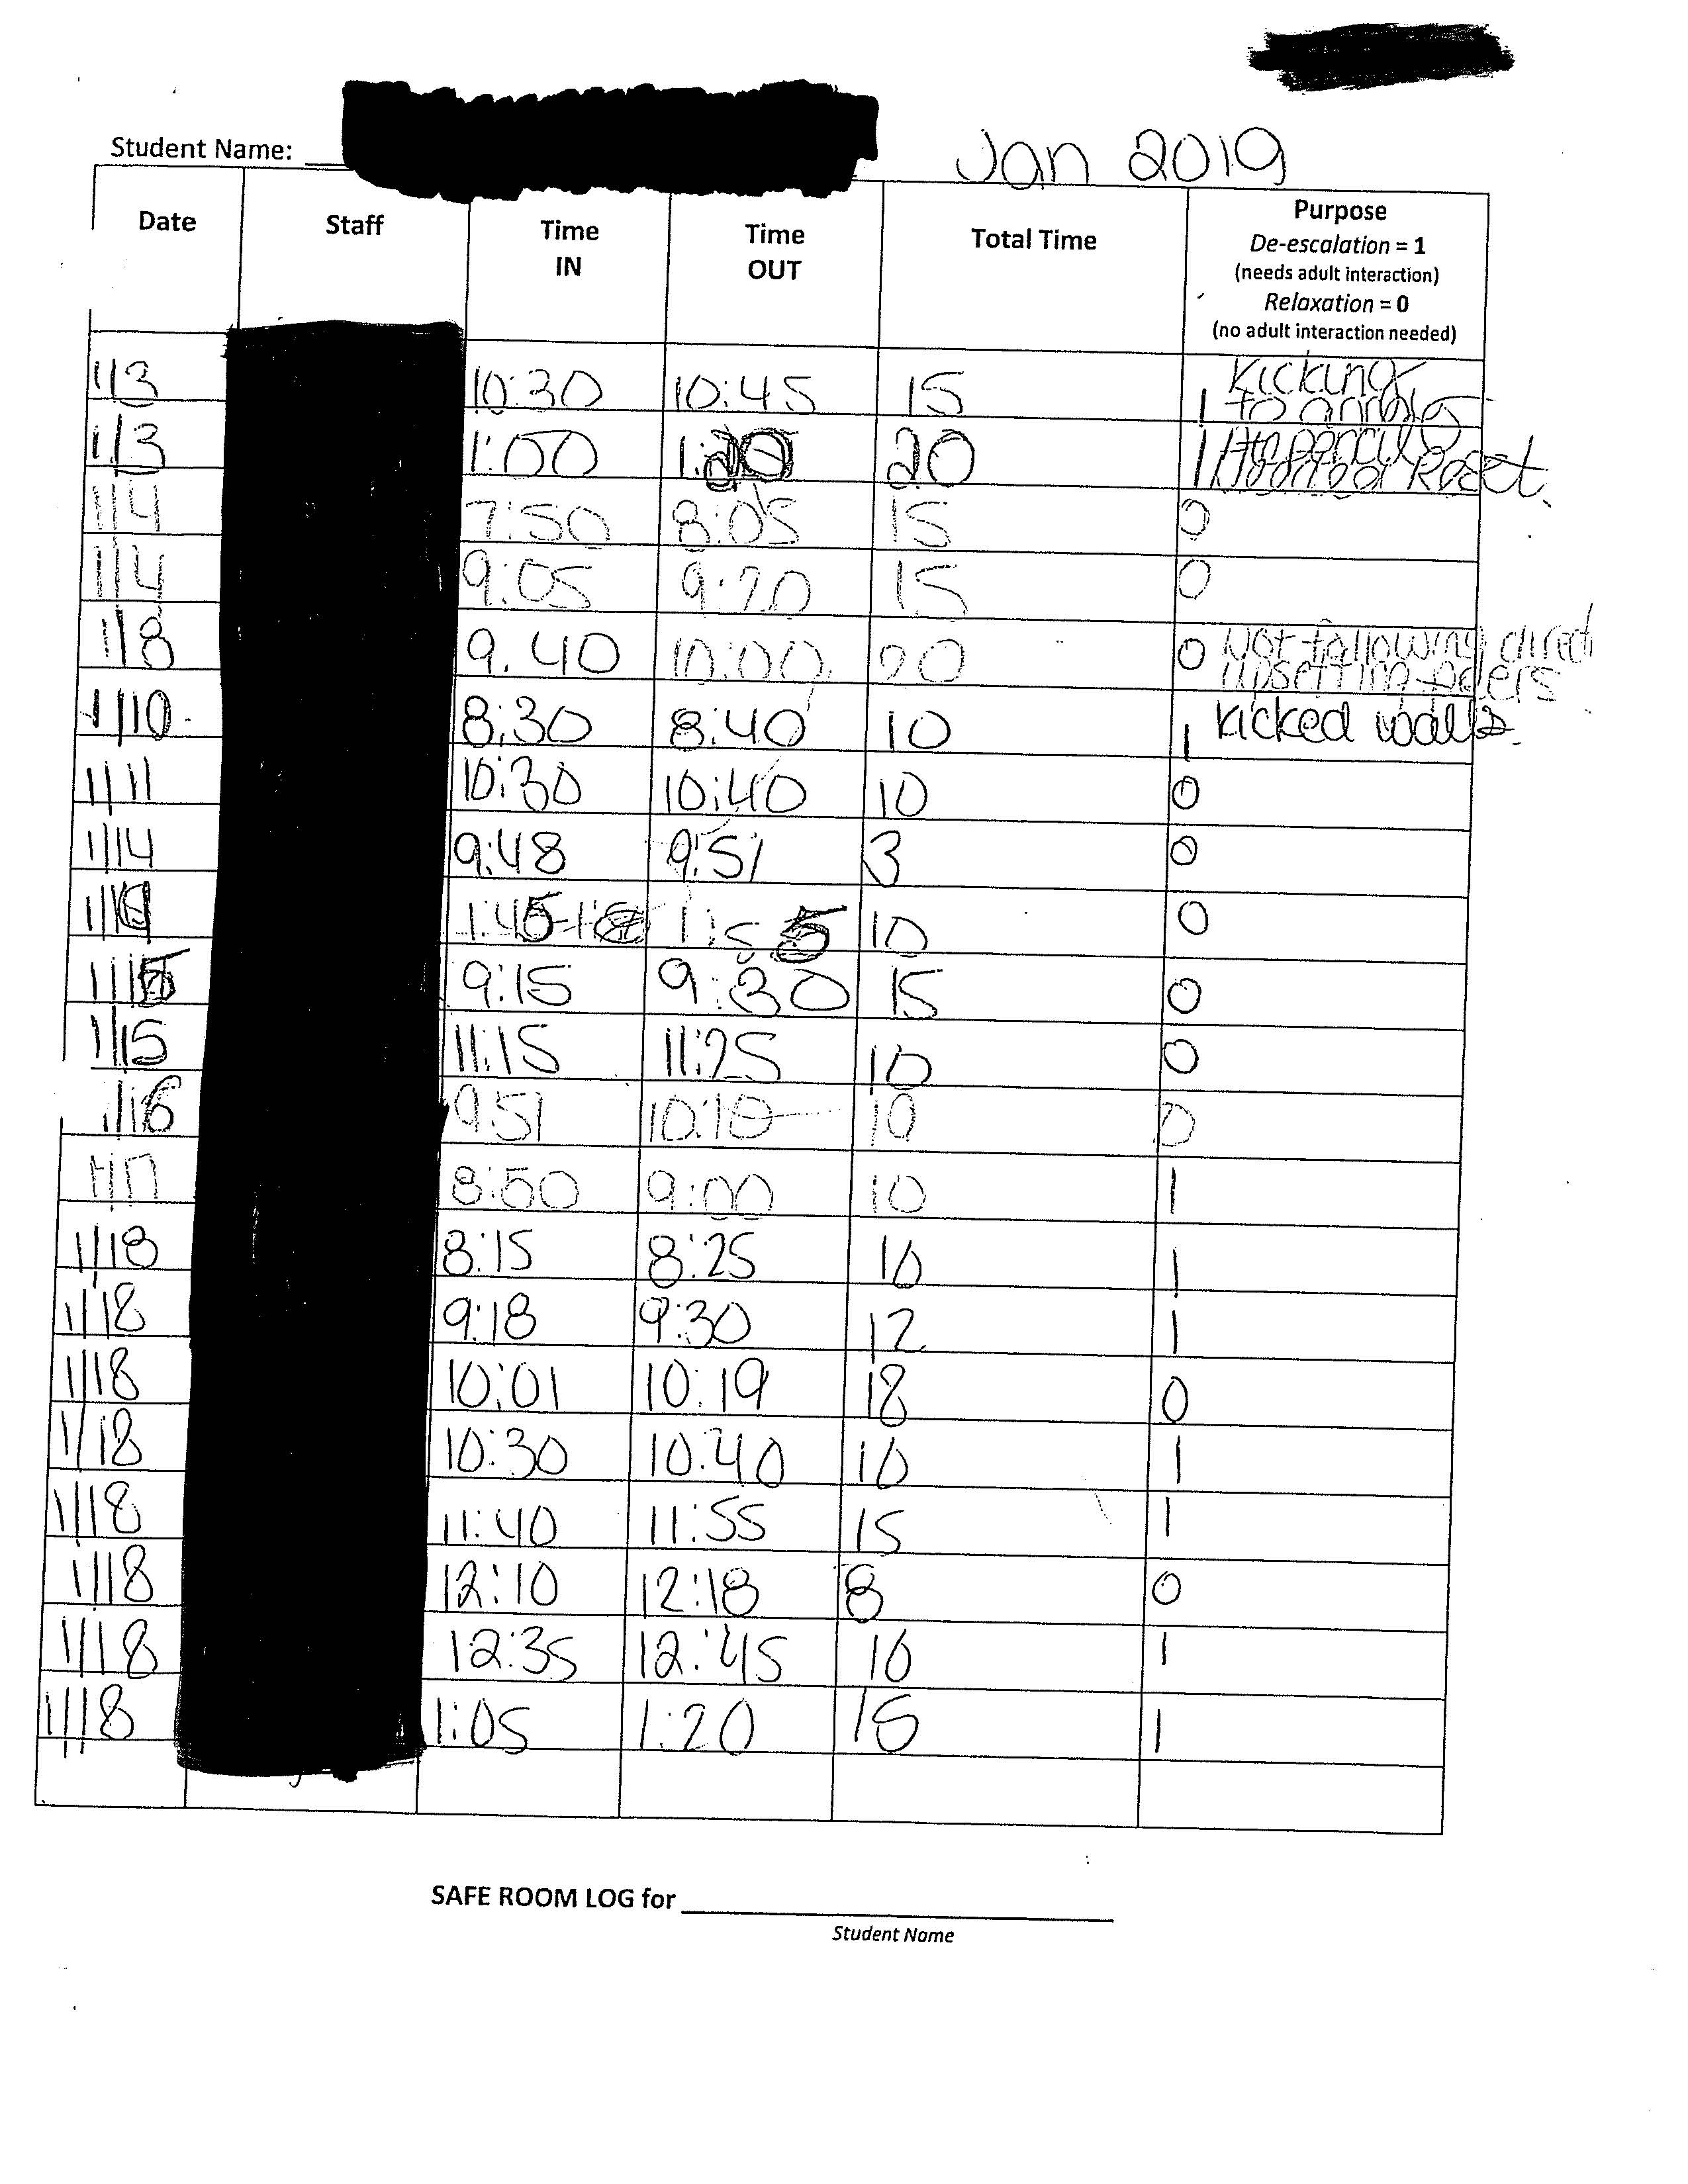 Student Name:
Jan 2019
Date Staff Time IN Time OUT Total Time Purpose
De-escalation = 1
(needs adult interaction)
Relaxation = 0
(no adult interaction needed)
1/3 10:30 10:45 15 1 Kicking
1/3 1:00 1:20 20 1 Reset.
1/4 7:50 8:05 15 0
1/4 9:05 9:20 15 0
1/8 9:40 10:00 20 0 Not following direct
upsetting peers
1/10 8:30 8:40 10 1 kicked walls.
1/11 10:30 10:40 10 0
1/14 9:48 9:51 3 0
1:45 1:55 10 0
1/15 9:15 9:30 15 0
1/15 11:15 11:25 10 0
1/16 9:51 10:10 10 0
1/17 8:50 9:00 10 1
1/18 8:15 8:25 10 1
1/18 9:18 9:30 12 1
1/18 10:01 10:19 18 0
1/18 10:30 10:40 10 1
1/18 11:40 11:55 15 1
1/18 12:10 12:18 8 0
1/18 12:35 12:45 10 1
1/18 1:05 1:20 15 1
SAFE ROOM LOG for
Student Name